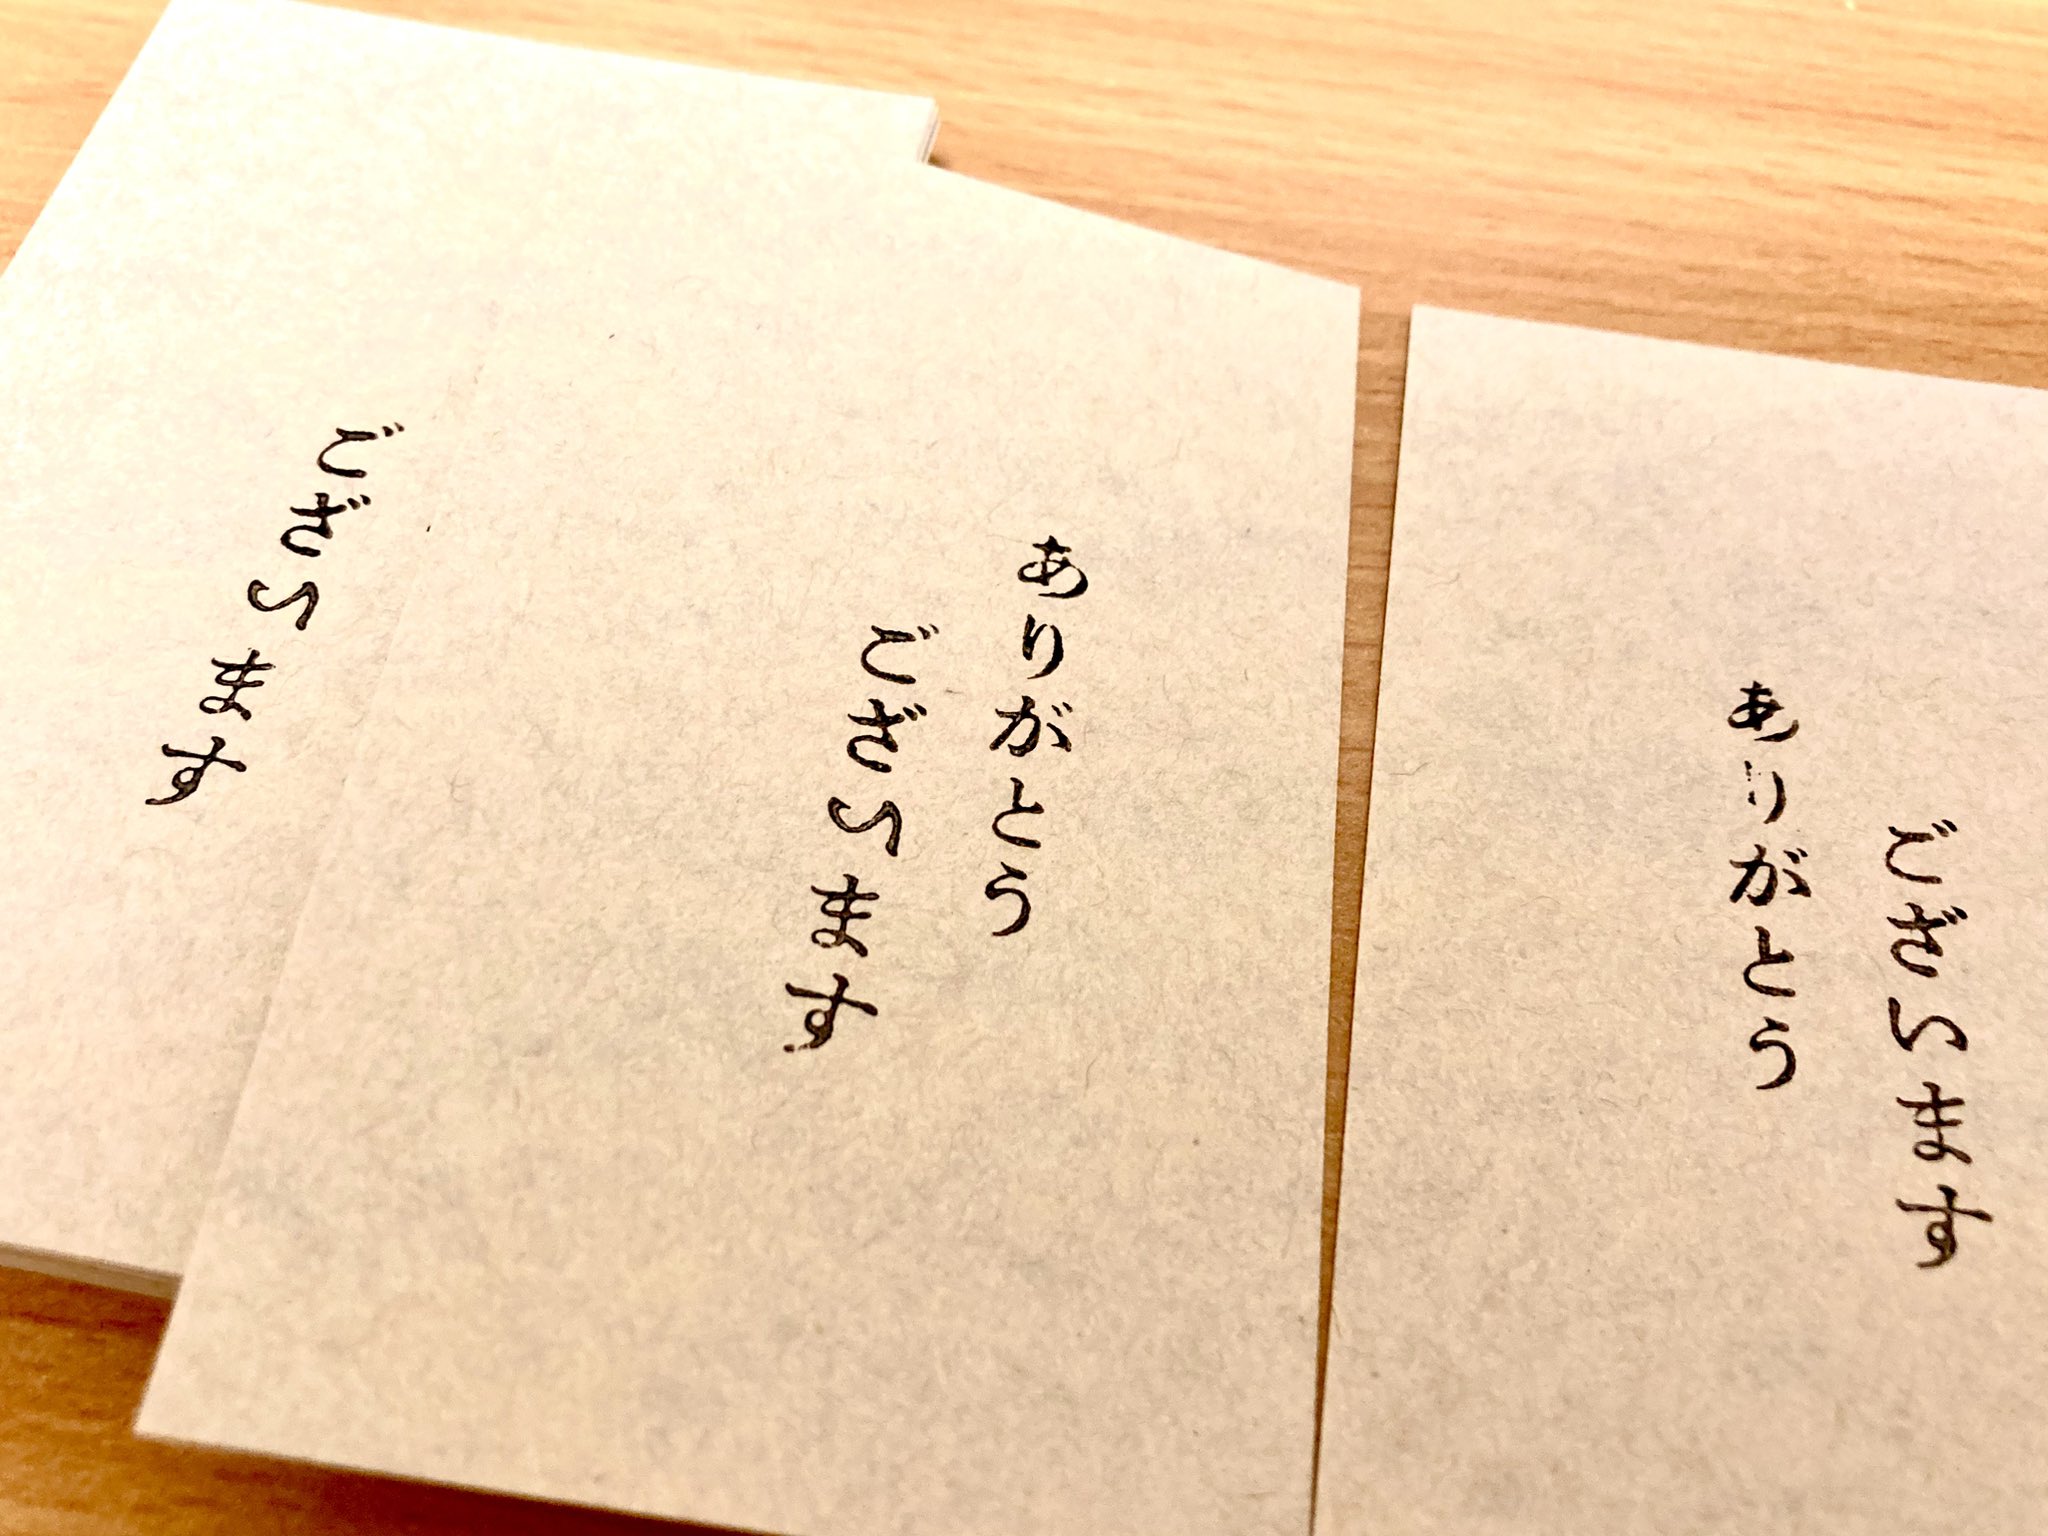 ございます
ありがとう
ありがとう
ございます
ございます